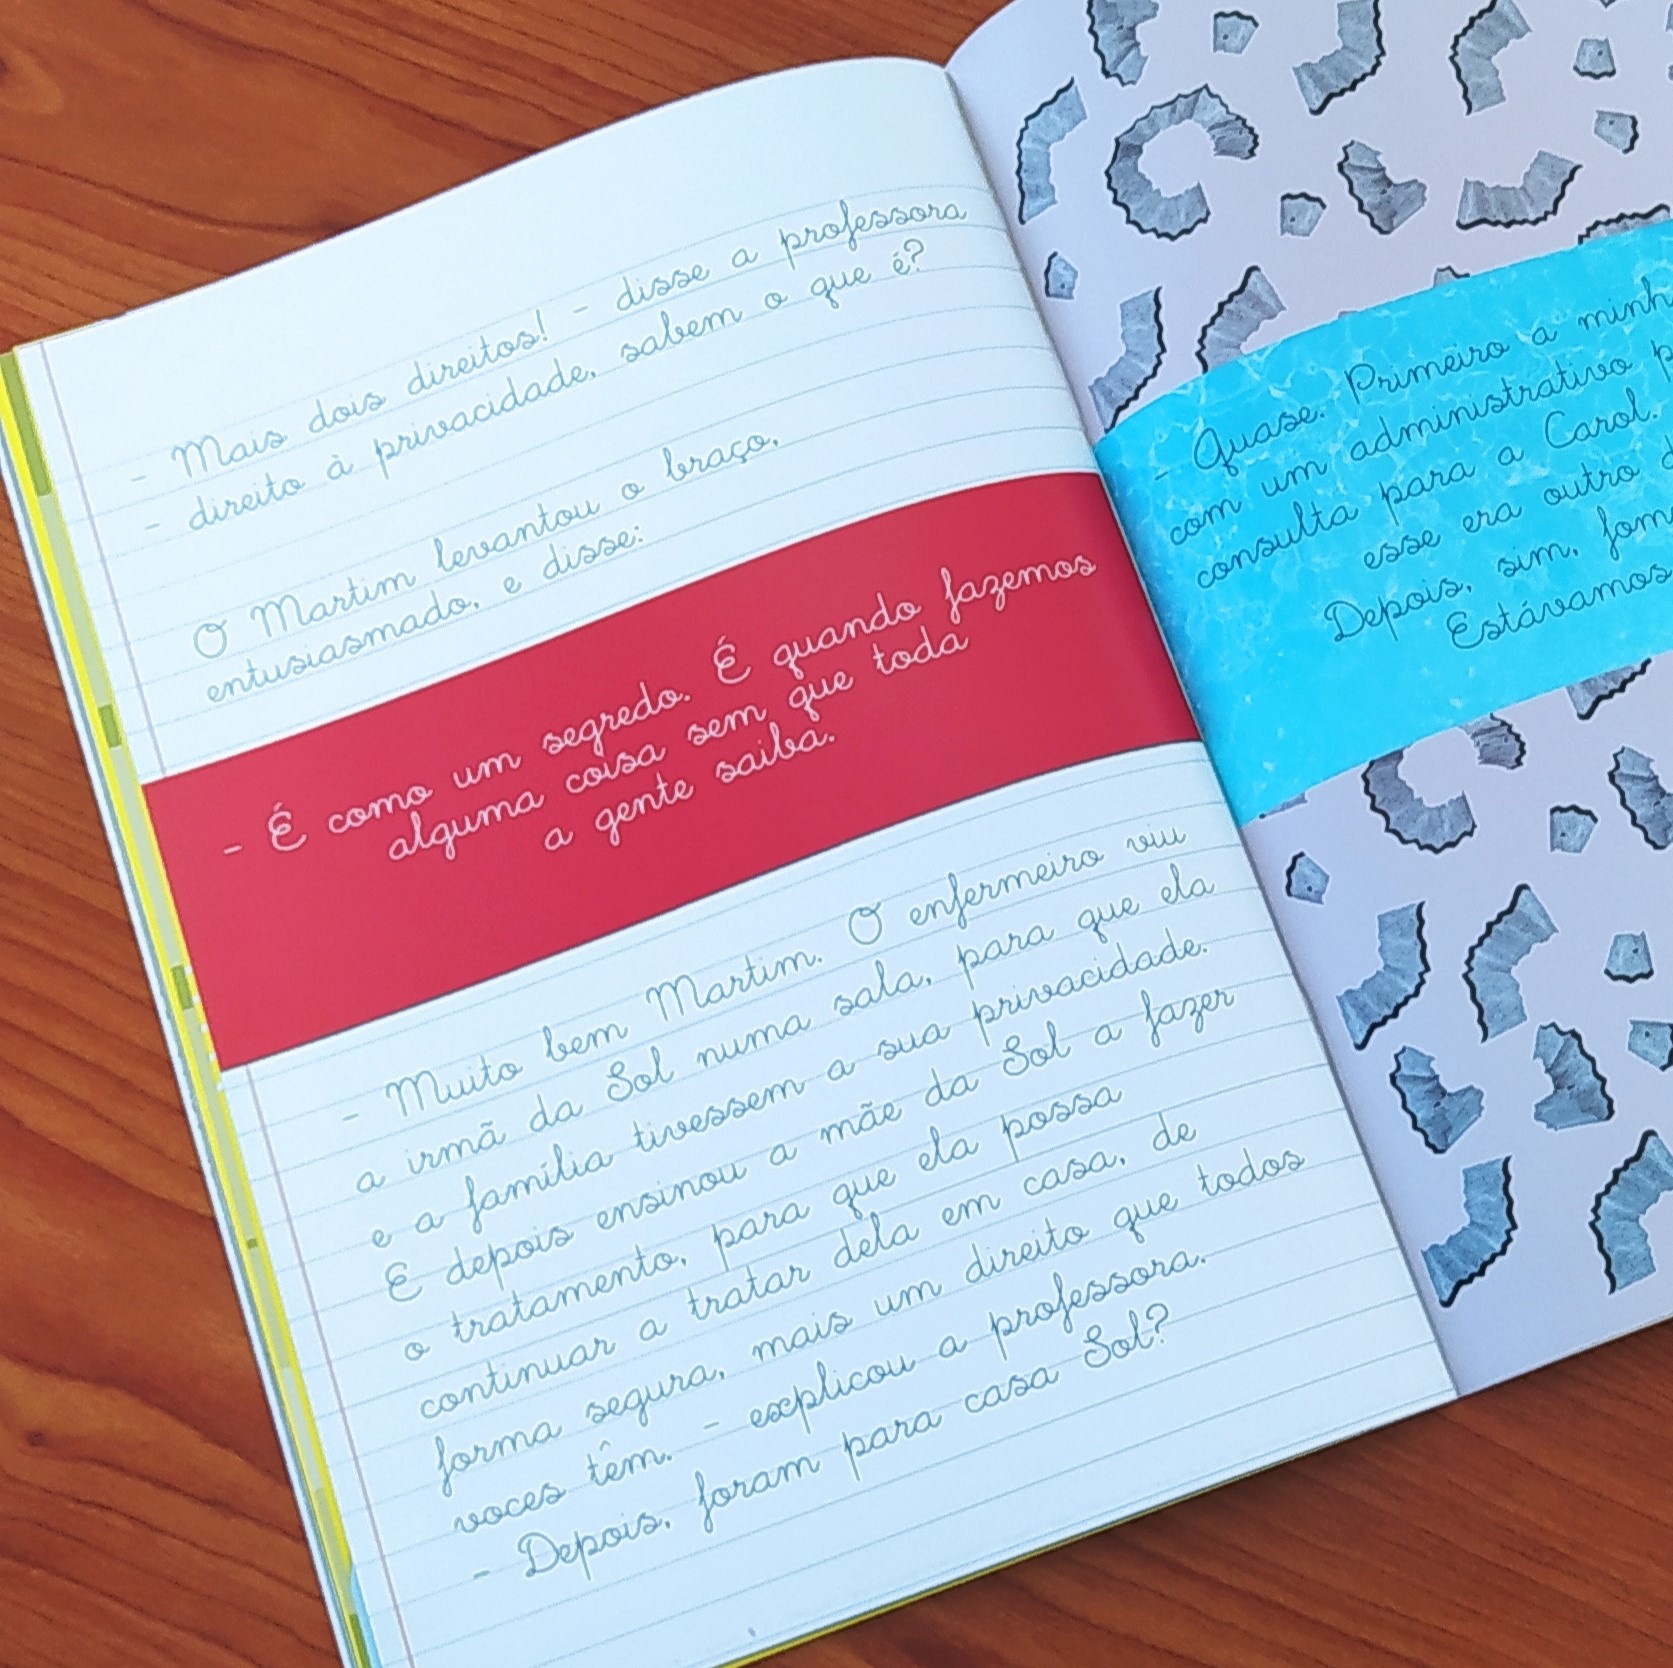 - Mais dois direitos! - disse a professora
- direito à privacidade, sabem o que é?
O Martim levantou o braço,
entusiasmado, e disse:
- É como um segredo. É quando fazemos
alguma coisa sem que toda
a gente saiba.
- Muito bem Martim. O enfermeiro viu
a irmã da Sol numa sala, para que ela
e a família tivessem a sua privacidade.
E depois ensinou a mãe da Sol a fazer
o tratamento, para que ela possa
continuar a tratar dela em casa, de
forma segura, mais um direito que todos
voces têm. - explicou a professora.
- Depois, foram para casa Sol?
- Quase. Primeiro a
com um administrativo
consulta para a Carol,
esse era outro
Depois, sim,
Estávamos